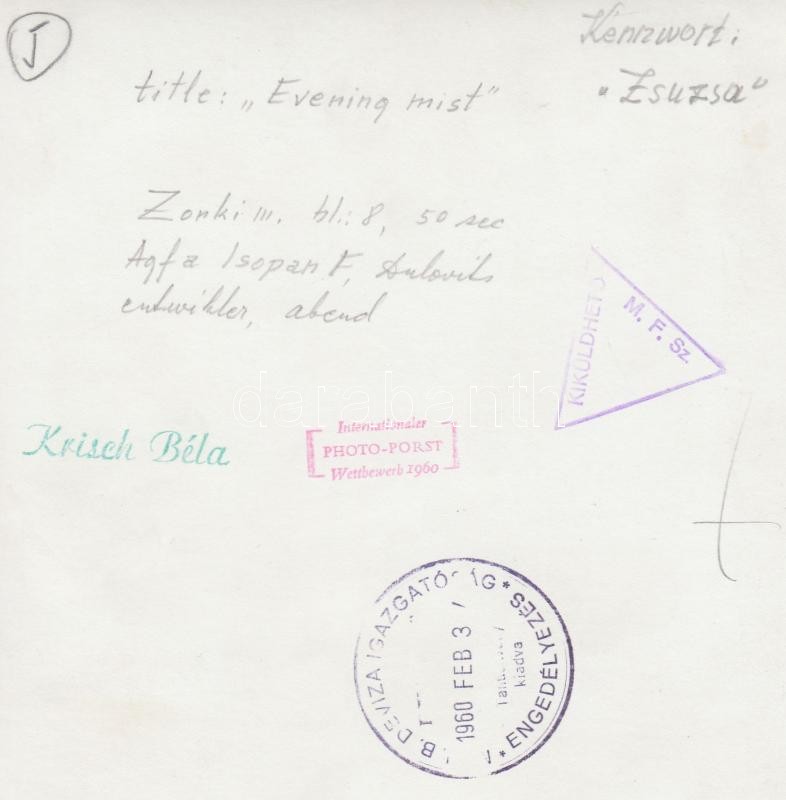 J
Kennwort:
"Zsuzsa"
title: „Evening mist"
Zorki III. bl.: 8, 50 sec
Agfa Isopan F, Dulovits
entwikler, abend
KIKÜLDHETŐ
M. F. Sz.
darabanth
Krisch Béla
Internationaler
PHOTO-PORST
Wettbewerb 1960
.B. DEVIZA IGAZGATÓSÁG * ENGEDÉLYEZÉS *
1960 FEB 3
kiadva